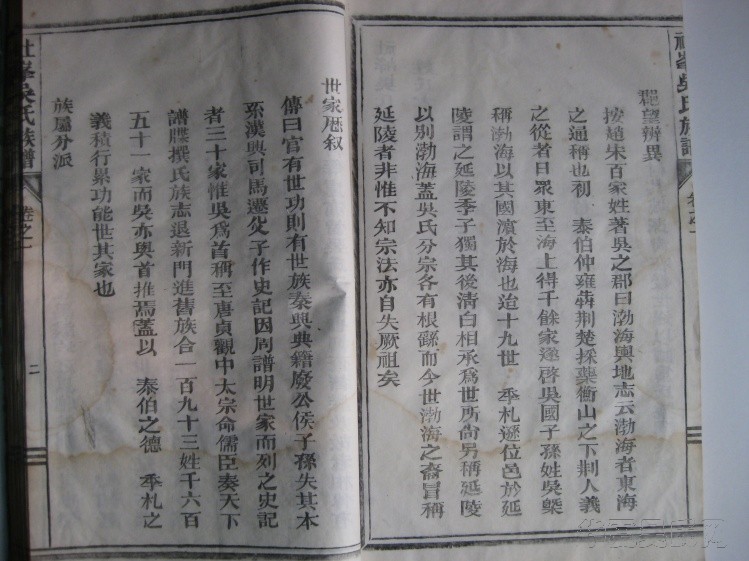 祖峯吳氏族譜
卷之一
郡望辨異
按遠宋百家姓著吳之郡曰渤海輿地志云渤海者東海
之通稱也初 泰伯仲雍犇荆楚採藥衡山之下荆人義
之從者日眾東至海上得千餘家遂啓吳國子孫姓吳槩
稱渤海以其國濱於海也迨十九世 季札遜位邑於延
陵謂之延陵季子獨其後清白相承為世所尚另稱延陵
以别渤海蓋吳氏分宗各有根繇而今世渤海之裔冒稱
延陵者非惟不知宗法亦自失厥祖矣
世家歷叙
傳曰官有世功則有世族秦興典籍廢公侯子孫失其本
系漢興司馬遷父子作史記因周譜明世家而列之史記
者三十家惟吳為首稱至唐貞觀中太宗命儒臣奏天下
譜牒撰氏族志退新門進舊族合一百九十三姓千六百
五十一家而吳亦與首推焉蓋以 泰伯之德 季札之
義積行累功能世其家也
族屬分派
吳氏族譜
卷之一
二